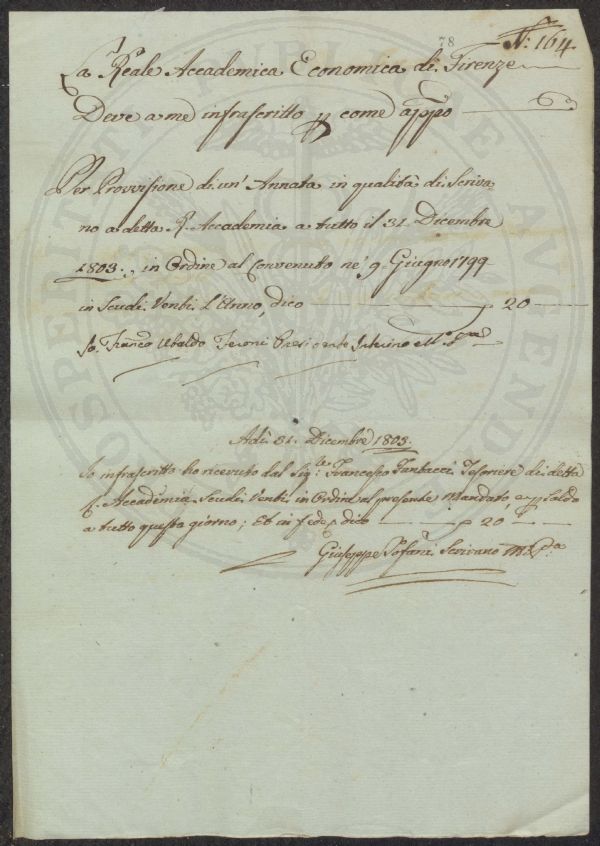 78
N: 164
La Reale Accademica Economica di Firenze
Deve a me infrascritto p come appo
Per Provvisione di un' Annata in qualità di Scriva
no a detta R. Accademia a tutto il 31. Dicembre
1803., in Ordine al Convenuto ne' 9. Giugno 1799
in Scudi Venti L'Anno, dico 20
Io. Franco Ubaldo Feroni Presidente Interino
Adì 31. Dicembre 1803.
Io infrascritto ho ricevuto dal Sigre: Francesco Tesoriere di detta
R. Accademia Scudi Venti in Ordine al presente Mandato, e p saldo
a tutto questo giorno; Et in fede dico p 20
Giuseppe Sofani Scrivano
PROSPERITATI PUBLICAE AUGENDAE